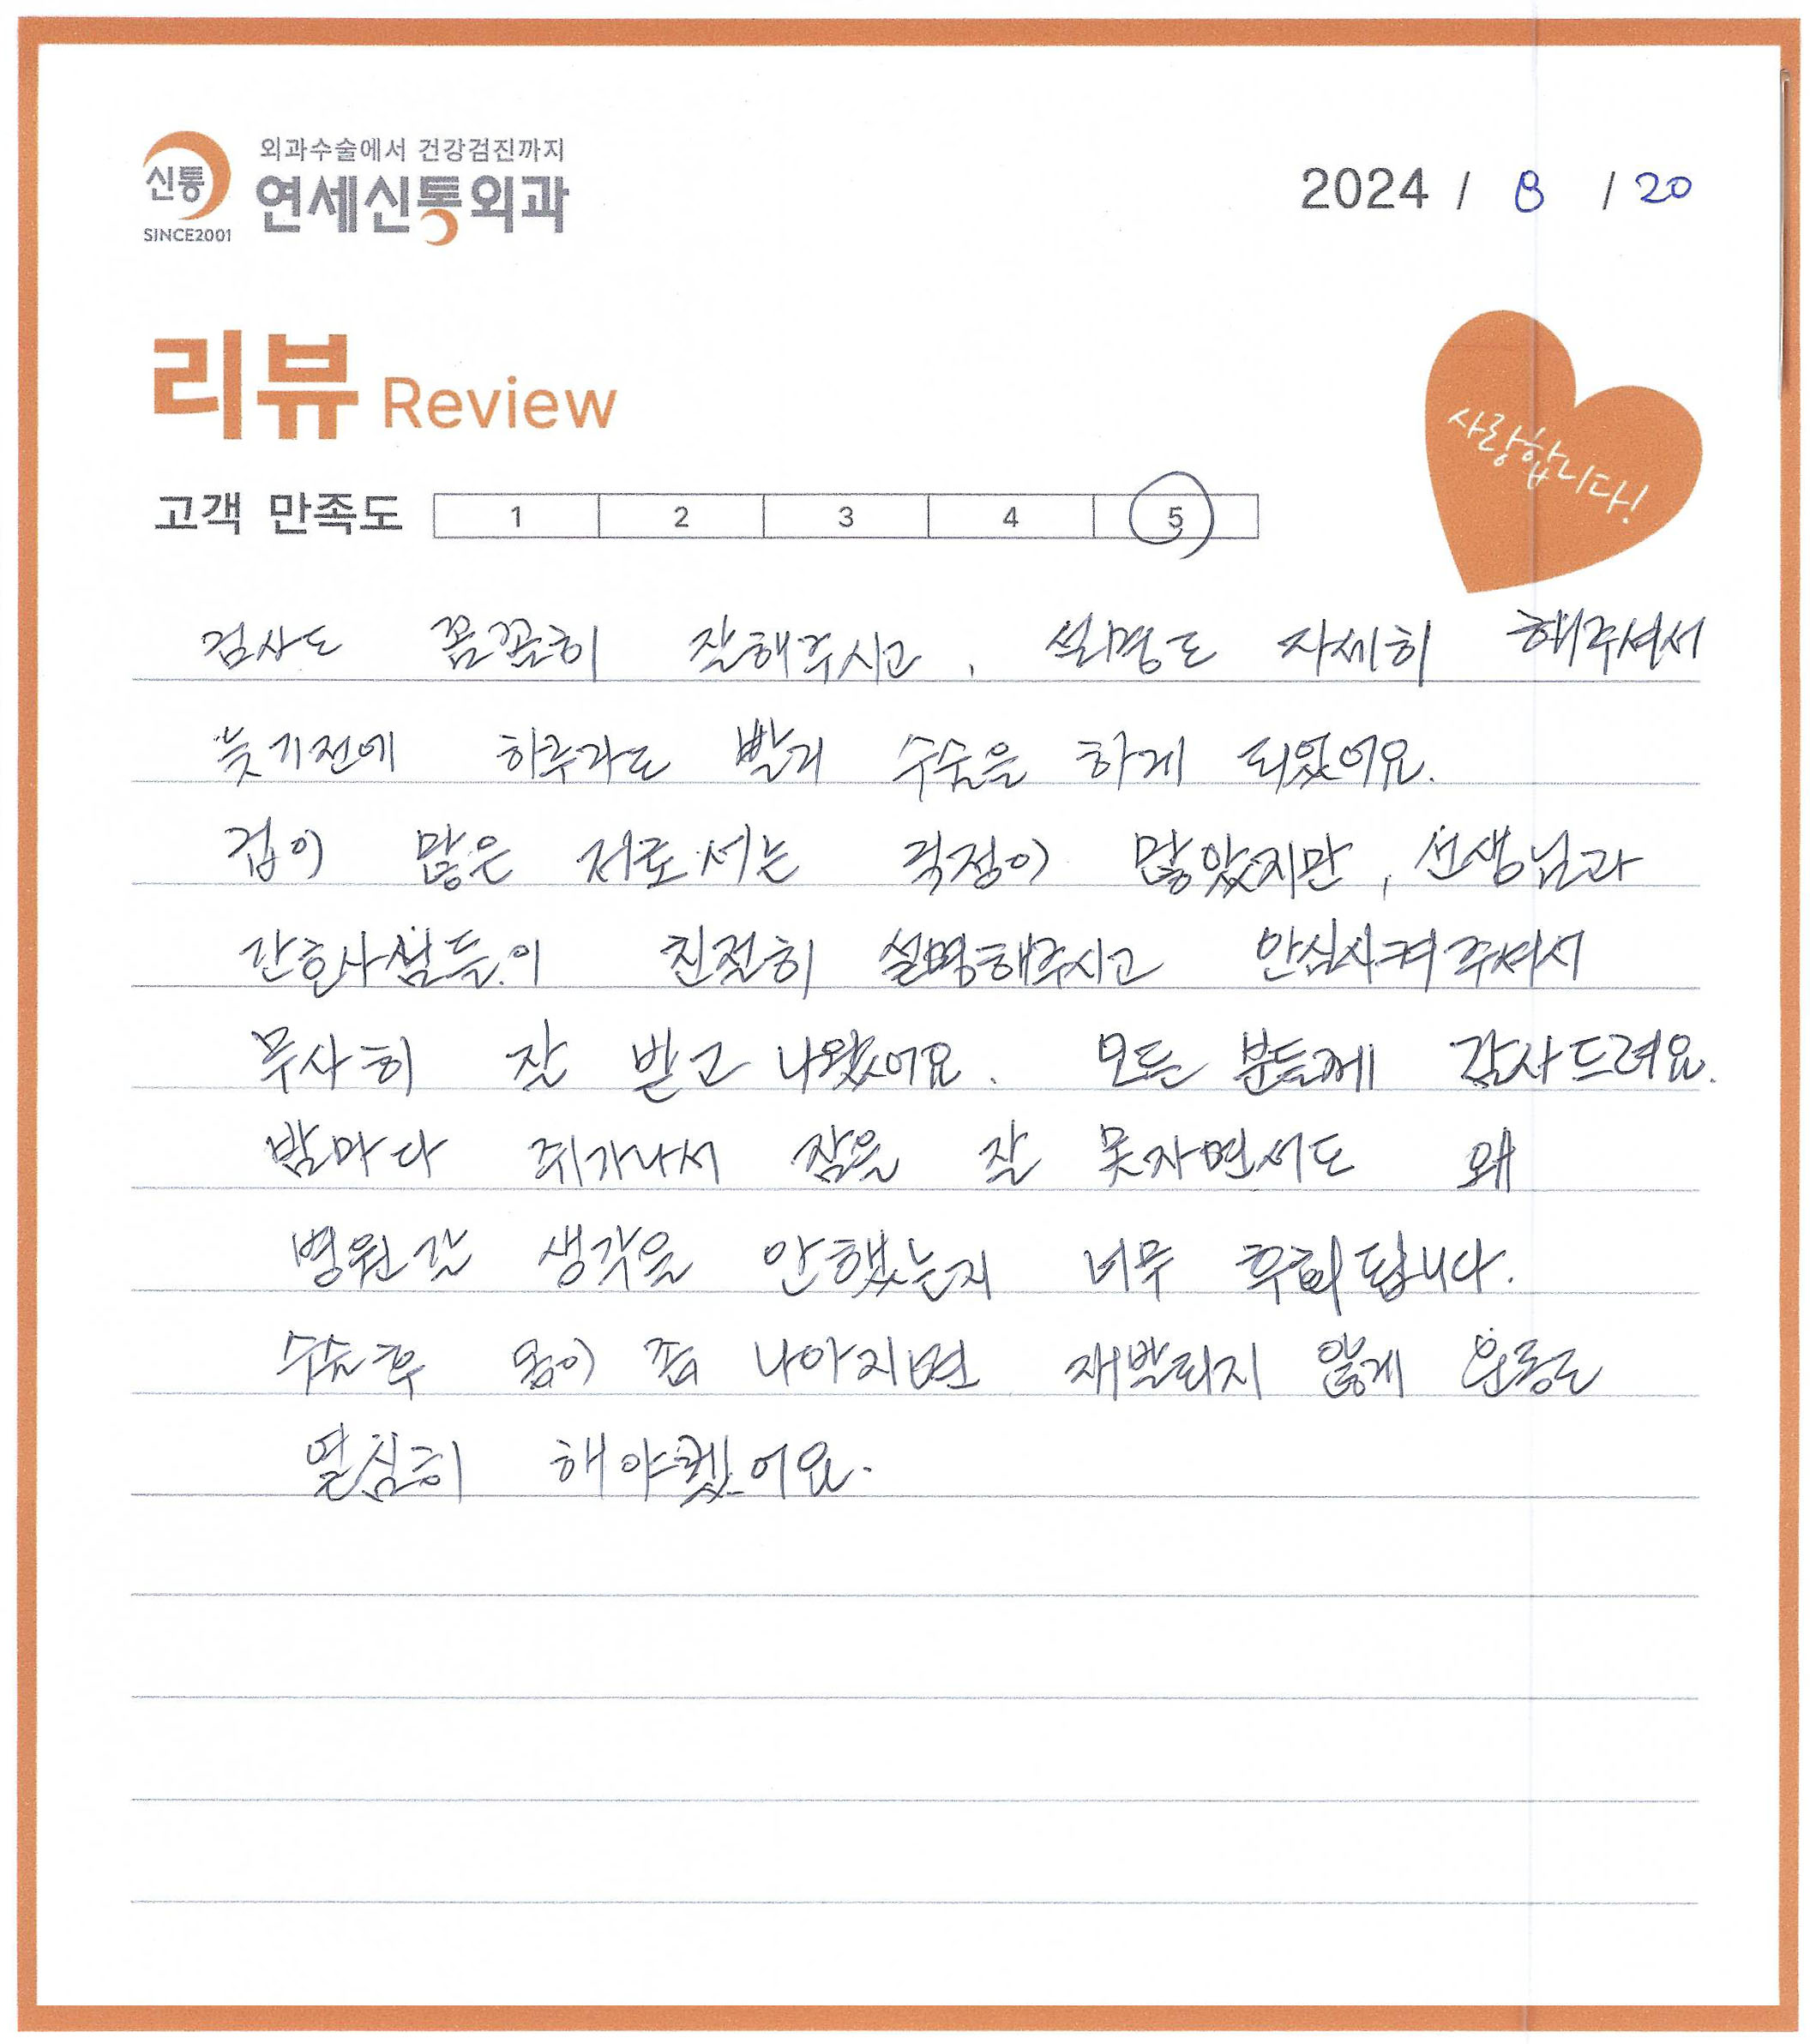 외과수술에서 건강검진까지
신통 연세신통외과
SINCE2001
2024 / 8 / 20
리뷰 Review
사랑합니다!
고객 만족도 1 2 3 4 5
검사도 꼼꼼히 잘해주시고, 설명도 자세히 해주셔서
늦기전에 하루라도 빨리 수술을 하게 되었어요.
겁이 많은 저로서는 걱정이 많았지만, 선생님과
간호사쌤들이 친절히 설명해주시고 안심시켜주셔서
무사히 잘 받고 나왔어요. 모든 분들께 감사드려요.
밤마다 쥐가나서 잠을 잘 못자면서도 왜
병원갈 생각을 안했는지 너무 후회됩니다.
수술후 몸이 좀 나아지면 재발되지 않게 운동도
열심히 해야겠어요.